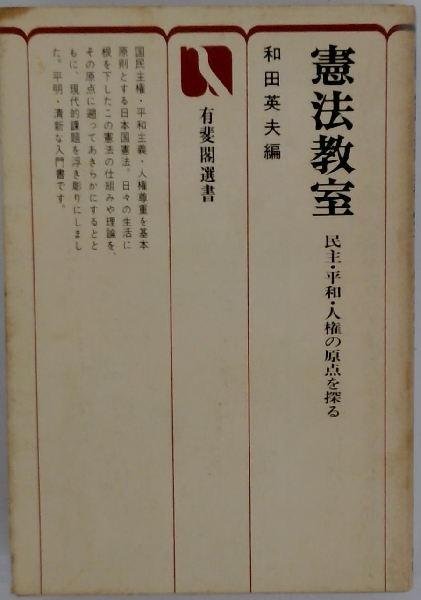 憲法教室
民主・平和・人権の原点を探る
和田英夫編
有斐閣選書
国民主権・平和主義・人権尊重を基本
原則とする日本国憲法。日々の生活に
根を下したこの憲法の仕組みや理論を、
その原点に遡ってあきらかにするとと
もに、現代的課題を浮き彫りにしまし
た。平明・清新な入門書です。